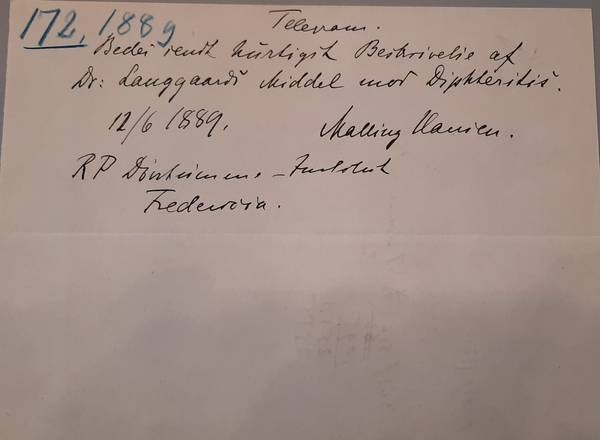 172, 1889
Telegram.
Bedes sendt hurtigst Beskrivelse af
Dr: Langgaards Middel mod Diphteritis.
12/6 1889.
Malling Hansen.
RP Døvstumme-Institut
Fredericia.